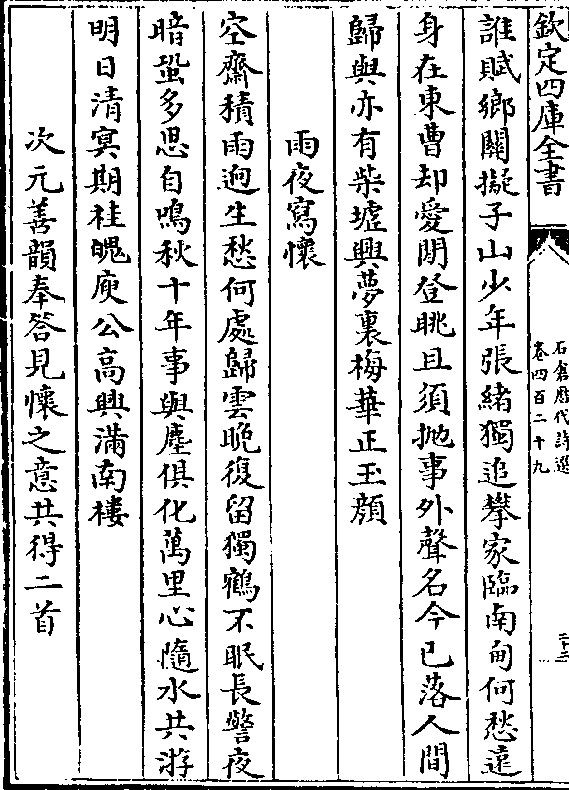 欽定四庫全書
石倉歷代詩選
卷四百二十九
二十二
誰賦鄉關擬子山少年張緒獨追攀家臨南甸何愁遠
身在東曹却愛閒登眺且須抛事外聲名今已落人間
歸與亦有柴墟興夢裏梅華正玉顔
雨夜寫懷
空齋積雨逈生愁何處歸雲晚復留獨鶴不眠長警夜
暗蛩多思自鳴秋十年事與塵俱化萬里心隨水共游
明日清𡨕期桂魄庾公高興滿南樓
次元善韻奉答見懷之意共得二首